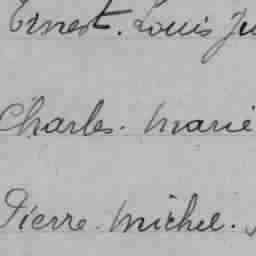 Ernest. Louis Ju
Charles. Marie
Pierre. Michel.